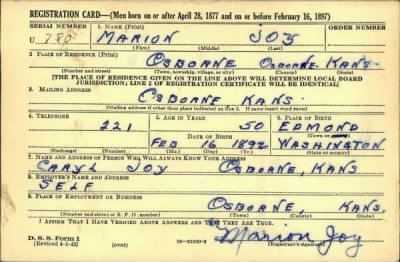 REGISTRATION CARD—(Men born on or after April 28, 1877 and on or before February 16, 1897)
SERIAL NUMBER 1. NAME (Print) ORDER NUMBER
U 780 MARION JOY
(First) (Middle) (Last)
2. PLACE OF RESIDENCE (Print)
OSBORNE OSBORNE KANS.
(Number and street) (Town, township, village, or city) (County) (State)
[THE PLACE OF RESIDENCE GIVEN ON THE LINE ABOVE WILL DETERMINE LOCAL BOARD
JURISDICTION; LINE 2 OF REGISTRATION CERTIFICATE WILL BE IDENTICAL]
3. MAILING ADDRESS
OSBORNE KANS.
[Mailing address if other than place indicated on line 2. If same insert word same]
4. TELEPHONE 5. AGE IN YEARS 6. PLACE OF BIRTH
221 50 EDMOND
DATE OF BIRTH (Town or county)
FEB. 16 1892 WASHINGTON
(Exchange) (Number) (Mo.) (Day) (Yr.) (State or country)
7. NAME AND ADDRESS OF PERSON WHO WILL ALWAYS KNOW YOUR ADDRESS
CARYL JOY OSBORNE, KANS
8. EMPLOYER'S NAME AND ADDRESS
SELF
9. PLACE OF EMPLOYMENT OR BUSINESS
OSBORNE, KANS.
(Number and street or R. F. D. number) (Town) (County) (State)
I AFFIRM THAT I HAVE VERIFIED ABOVE ANSWERS AND THAT THEY ARE TRUE.
D. S. S. Form 1
(Revised 4-1-42) (over) Marion Joy
(Registrant's signature)